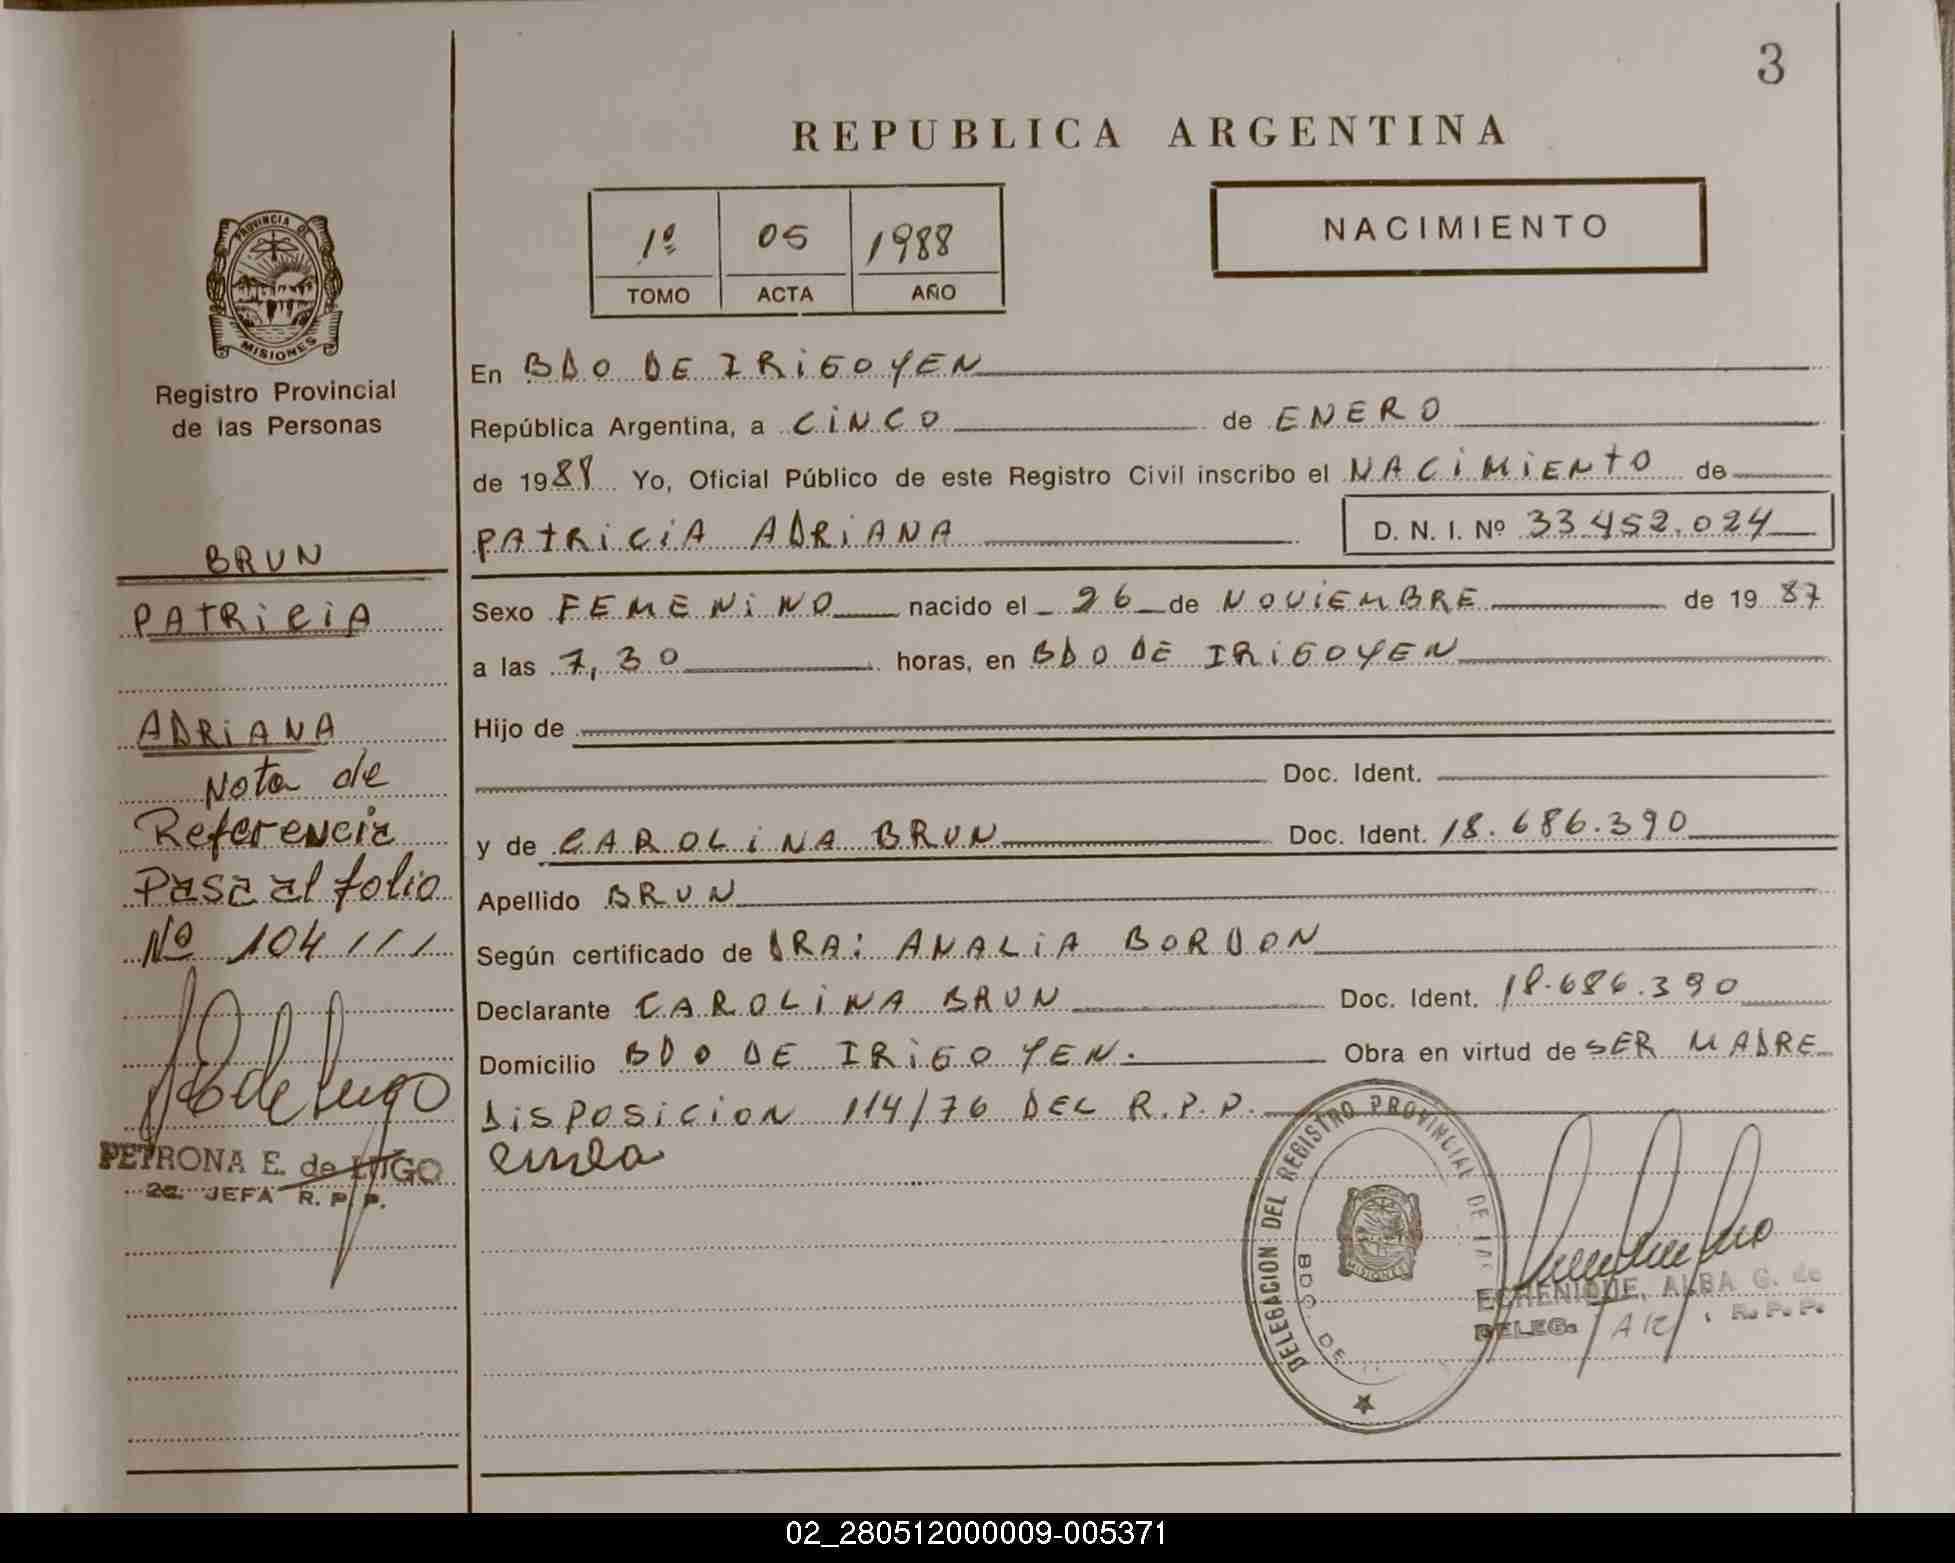 3
REPUBLICA ARGENTINA
1º 05 1988
TOMO ACTA AÑO
NACIMIENTO
PROVINCIA DE
MISIONES
Registro Provincial
de las Personas
BRUN
PATRICIA
ADRIANA
Nota de
Referencia
Pasa al folio
Nº 104 ///
PETRONA E. de LUGO
2a. JEFA R. P. P.
En BDO DE IRIGOYEN
República Argentina, a CINCO de ENERO
de 1988 Yo, Oficial Público de este Registro Civil inscribo el NACIMIENTO de
PATRICIA ADRIANA D. N. I. Nº 33452.024
Sexo FEMENINO nacido el 26 de NOVIEMBRE de 1987
a las 7,30 horas, en BDO DE IRIGOYEN
Hijo de
Doc. Ident.
y de CAROLINA BRUN Doc. Ident. 18.686.390
Apellido BRUN
Según certificado de DRA: ANALIA BORDON
Declarante CAROLINA BRUN Doc. Ident. 18.686.390
Domicilio BDO DE IRIGOYEN. Obra en virtud de SER MADRE
DISPOSICION 114/76 DEL R.P.P.
DELEGACION DEL REGISTRO PROVINCIAL DE LAS
BDO. DE
MISIONES
ECHENIQUE, ALBA G. de
DELEG. R. P. P.
02_280512000009-005371